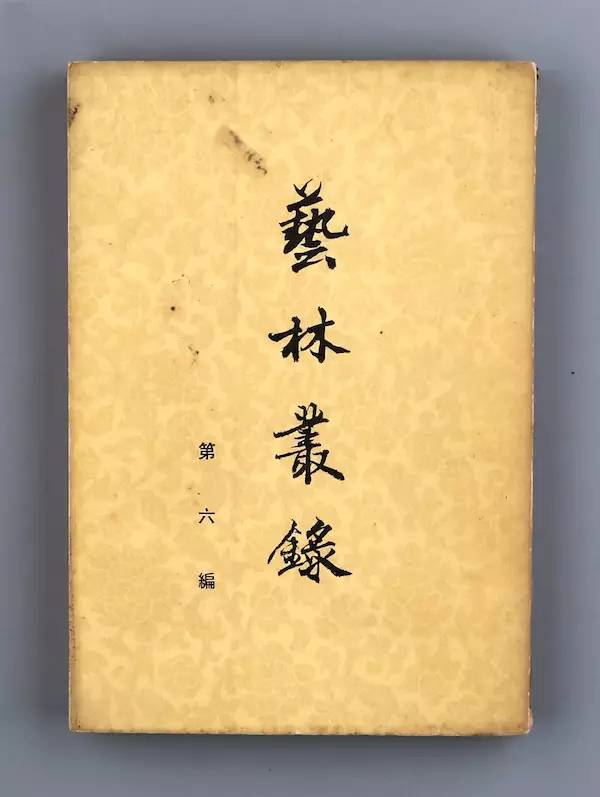 藝林叢錄
第六編